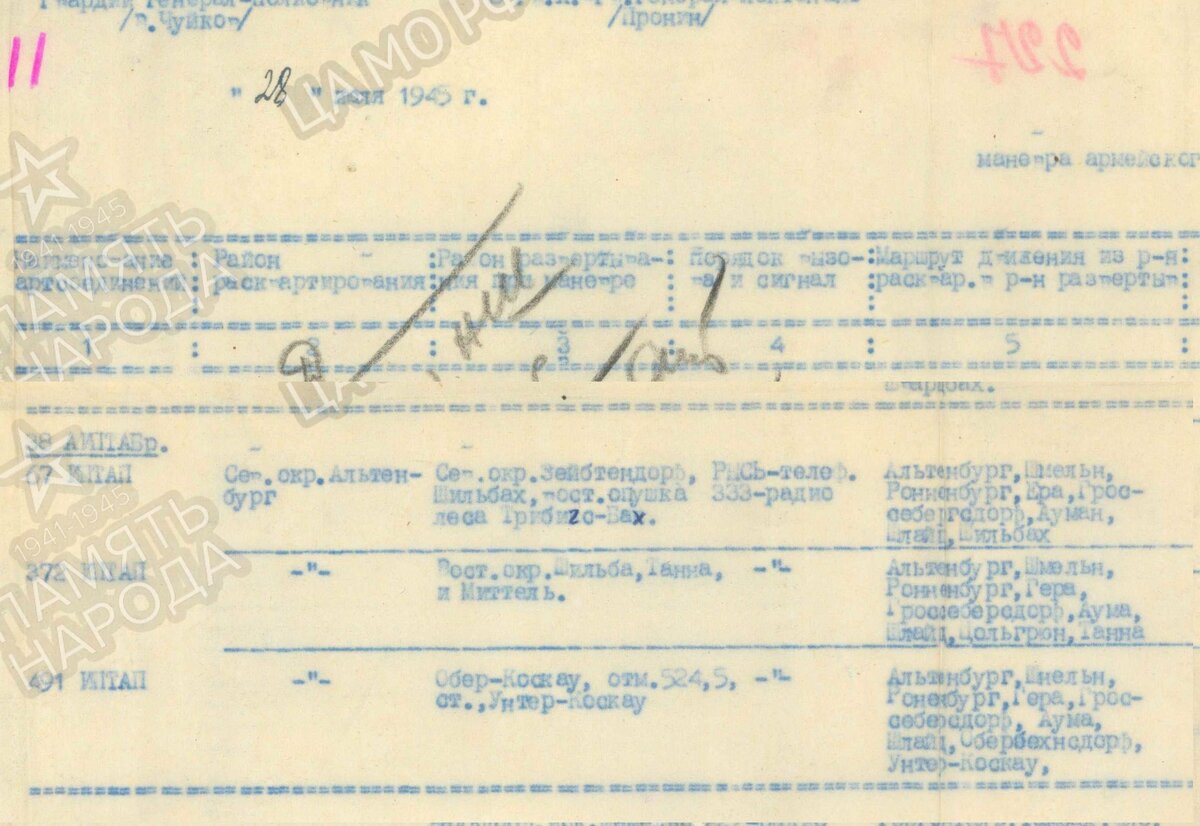 гвардии генерал-полковник
/В.Чуйков/
/Пронин/
11
227
"28" июля 1945 г.
маневра армейског
Наименование : Район : Район развертыва- : Порядок вызо- : Маршрут движения из р-н :
артсоединений : расквартирования : ния при маневре : ва и сигнал : расквар. в р-н разверты :
1 : 2 : 3 : 4 : 5 :
38 АИПТАБр.
67 ИПТАП
Сев.окр.Альтен-
бург
Сев.окр.Зейбтендорф,
Шильбах, вост.опушка
леса Трибигс-Бах.
РЫСЬ-телеф.
333-радио
Альтенбург,Шмельн,
Ронненбург,Ера,Грос-
себергсдорф,Ауман,
Шлайц,Шильбах
372 ИПТАП
-"-
Вост.окр.Шильба,Танна,
и Миттель.
-"-
Альтенбург,Шмельн,
Ронненбург,Гера,
Гроссеберсдорф,Аума,
Шлайц,Цольгрюн,Танна
491 ИПТАП
-"-
Обер-Коскау, отм.524,5,
ст.,Унтер-Коскау
-"-
Альтенбург,Шмельн,
Роненбург,Гера,Грос-
себерсдорф, Аума,
Шлайц,Обербехнсдорф,
Унтер-Коскау,
ЦАМО РФ
1941-1945
ПАМЯТЬ
НАРОДА
1941-1945
ПАМЯТЬ
НАРОДА